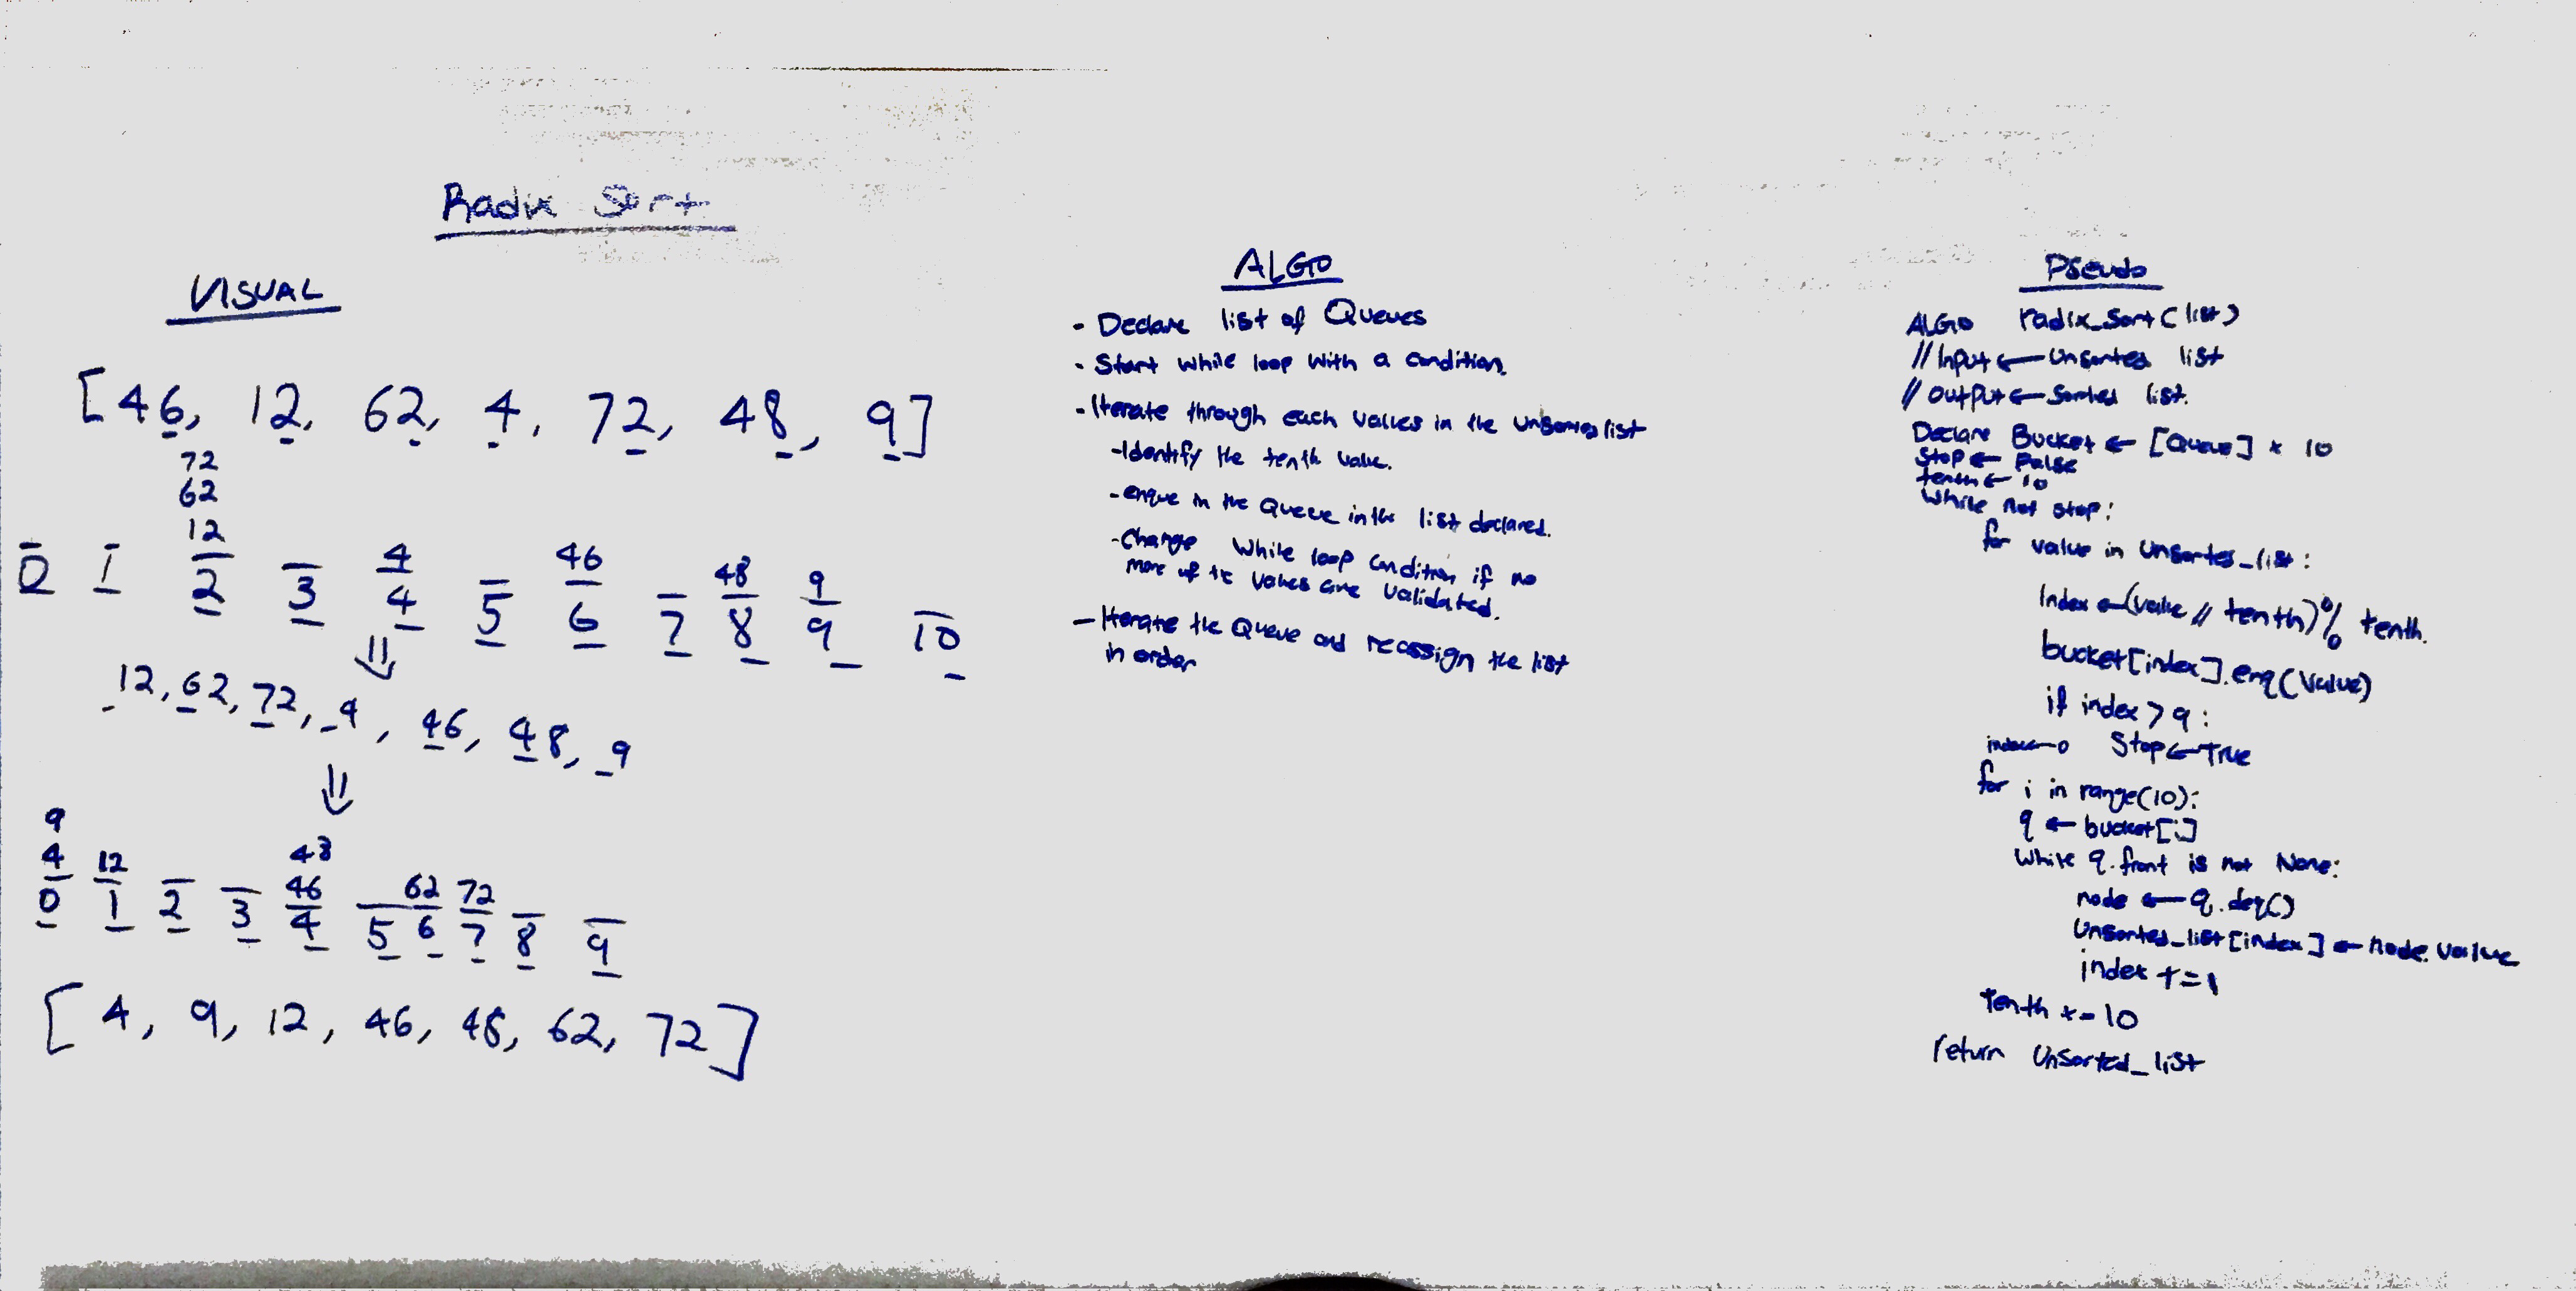 Radix Sort
VISUAL
[46, 12, 62, 4, 72, 48, 9]
72
62
12 4 46 48 9
0 1 2 3 4 5 6 7 8 9 10
12, 62, 72, 4, 46, 48, 9
9
4 12 48
46 62 72
0 1 2 3 4 5 6 7 8 9
[4, 9, 12, 46, 48, 62, 72]
ALGO
- Declare list of Queues
- Start while loop with a condition.
- Iterate through each values in the unsorted list
- Identify the tenth value.
- enque in the Queue in the list declared.
- Change While loop condition if no
more of the values are validated.
- Iterate the Queue and reassign the list
in order
Pseudo
ALGO radix_Sort(list)
// Input ← Unsorted list
// Output ← Sorted list.
Declare Bucket ← [Queue] * 10
Stop ← False
tenth ← 10
While not stop:
for value in unsorted_list:
Index ← (value // tenth) % tenth.
bucket[index].enq(value)
if index > 9:
Stop ← True
index ← 0
for i in range(10):
q ← bucket[i]
While q.front is not None:
node ← q.deq()
Unsorted_list[index] ← node.value
index += 1
Tenth *= 10
return Unsorted_list